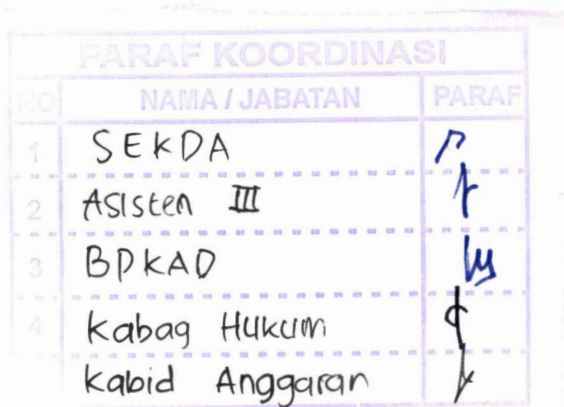 PARAF KOORDINASI
NO NAMA / JABATAN PARAF
1 SEKDA
2 Asisten III
3 BPKAD
4 Kabag Hukum
Kabid Anggaran